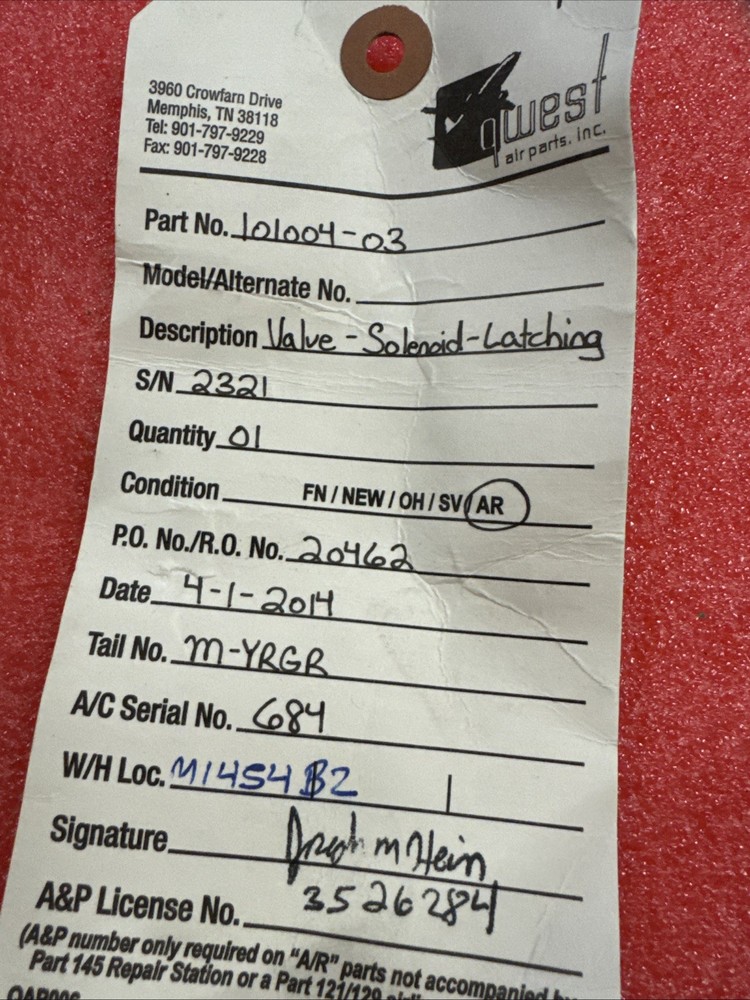 3960 Crowfarn Drive
Memphis, TN 38118
Tel: 901-797-9229
Fax: 901-797-9228
qwest
air parts, inc.
Part No. 101004-03
Model/Alternate No.
Description Valve-Solenoid-Latching
S/N 2321
Quantity 01
Condition FN / NEW / OH / SV / AR
P.O. No./R.O. No. 20462
Date 4-1-2014
Tail No. M-YRGR
A/C Serial No. 684
W/H Loc. M1454B2 |
Signature
A&P License No. 3526284
(A&P number only required on "A/R" parts not accompanied
Part 145 Repair Station or a Part 121/129